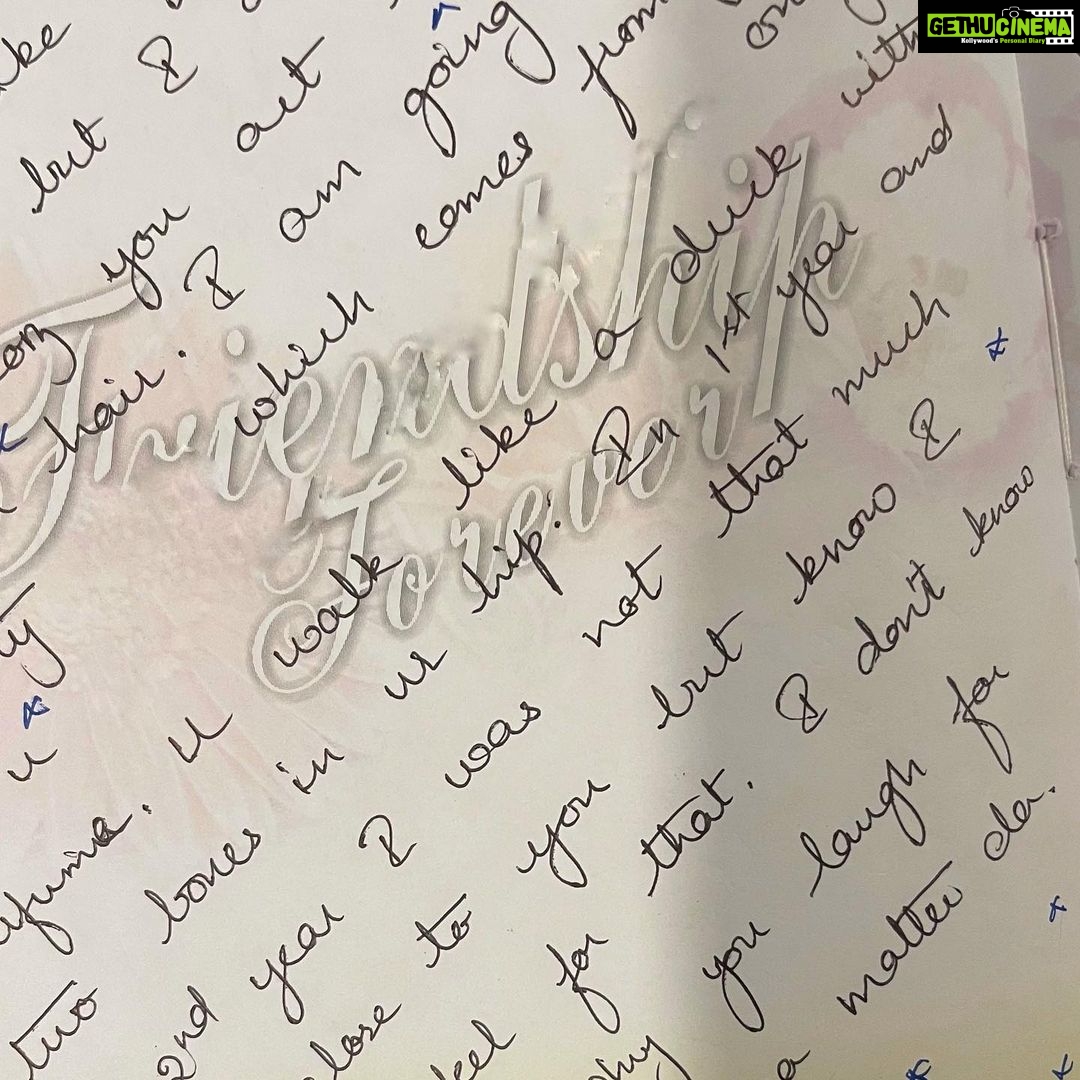 but I
on you act
hair. I am going
which comes from
u
u walk like a duck with
two bones in ur hip. In 1st year and
2nd year I was not that much
to you but know I
for that. I don't know
you laugh for
a matter da.
Friendship
Forever
GETHUCINEMA
Kollywood's Personal Diary